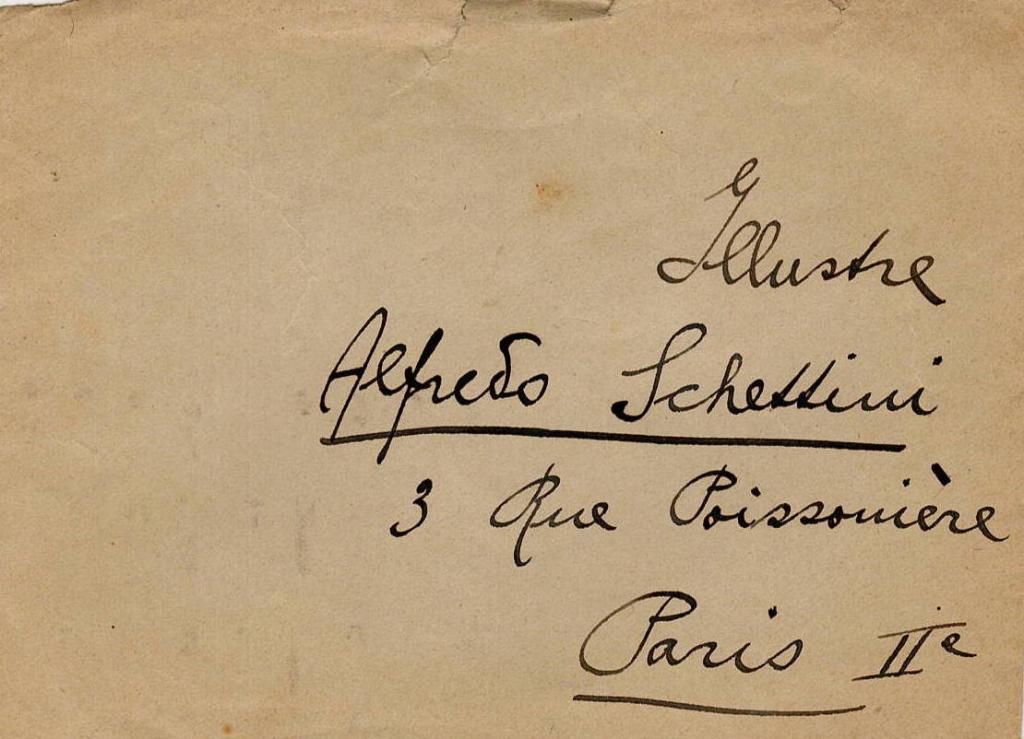 Illustre
Alfredo Schettini
3 Rue Poissonière
Paris IIe